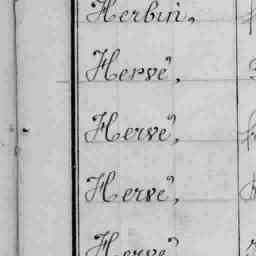 Herbin,
Hervé,
Hervé,
Hervé,
Hervé